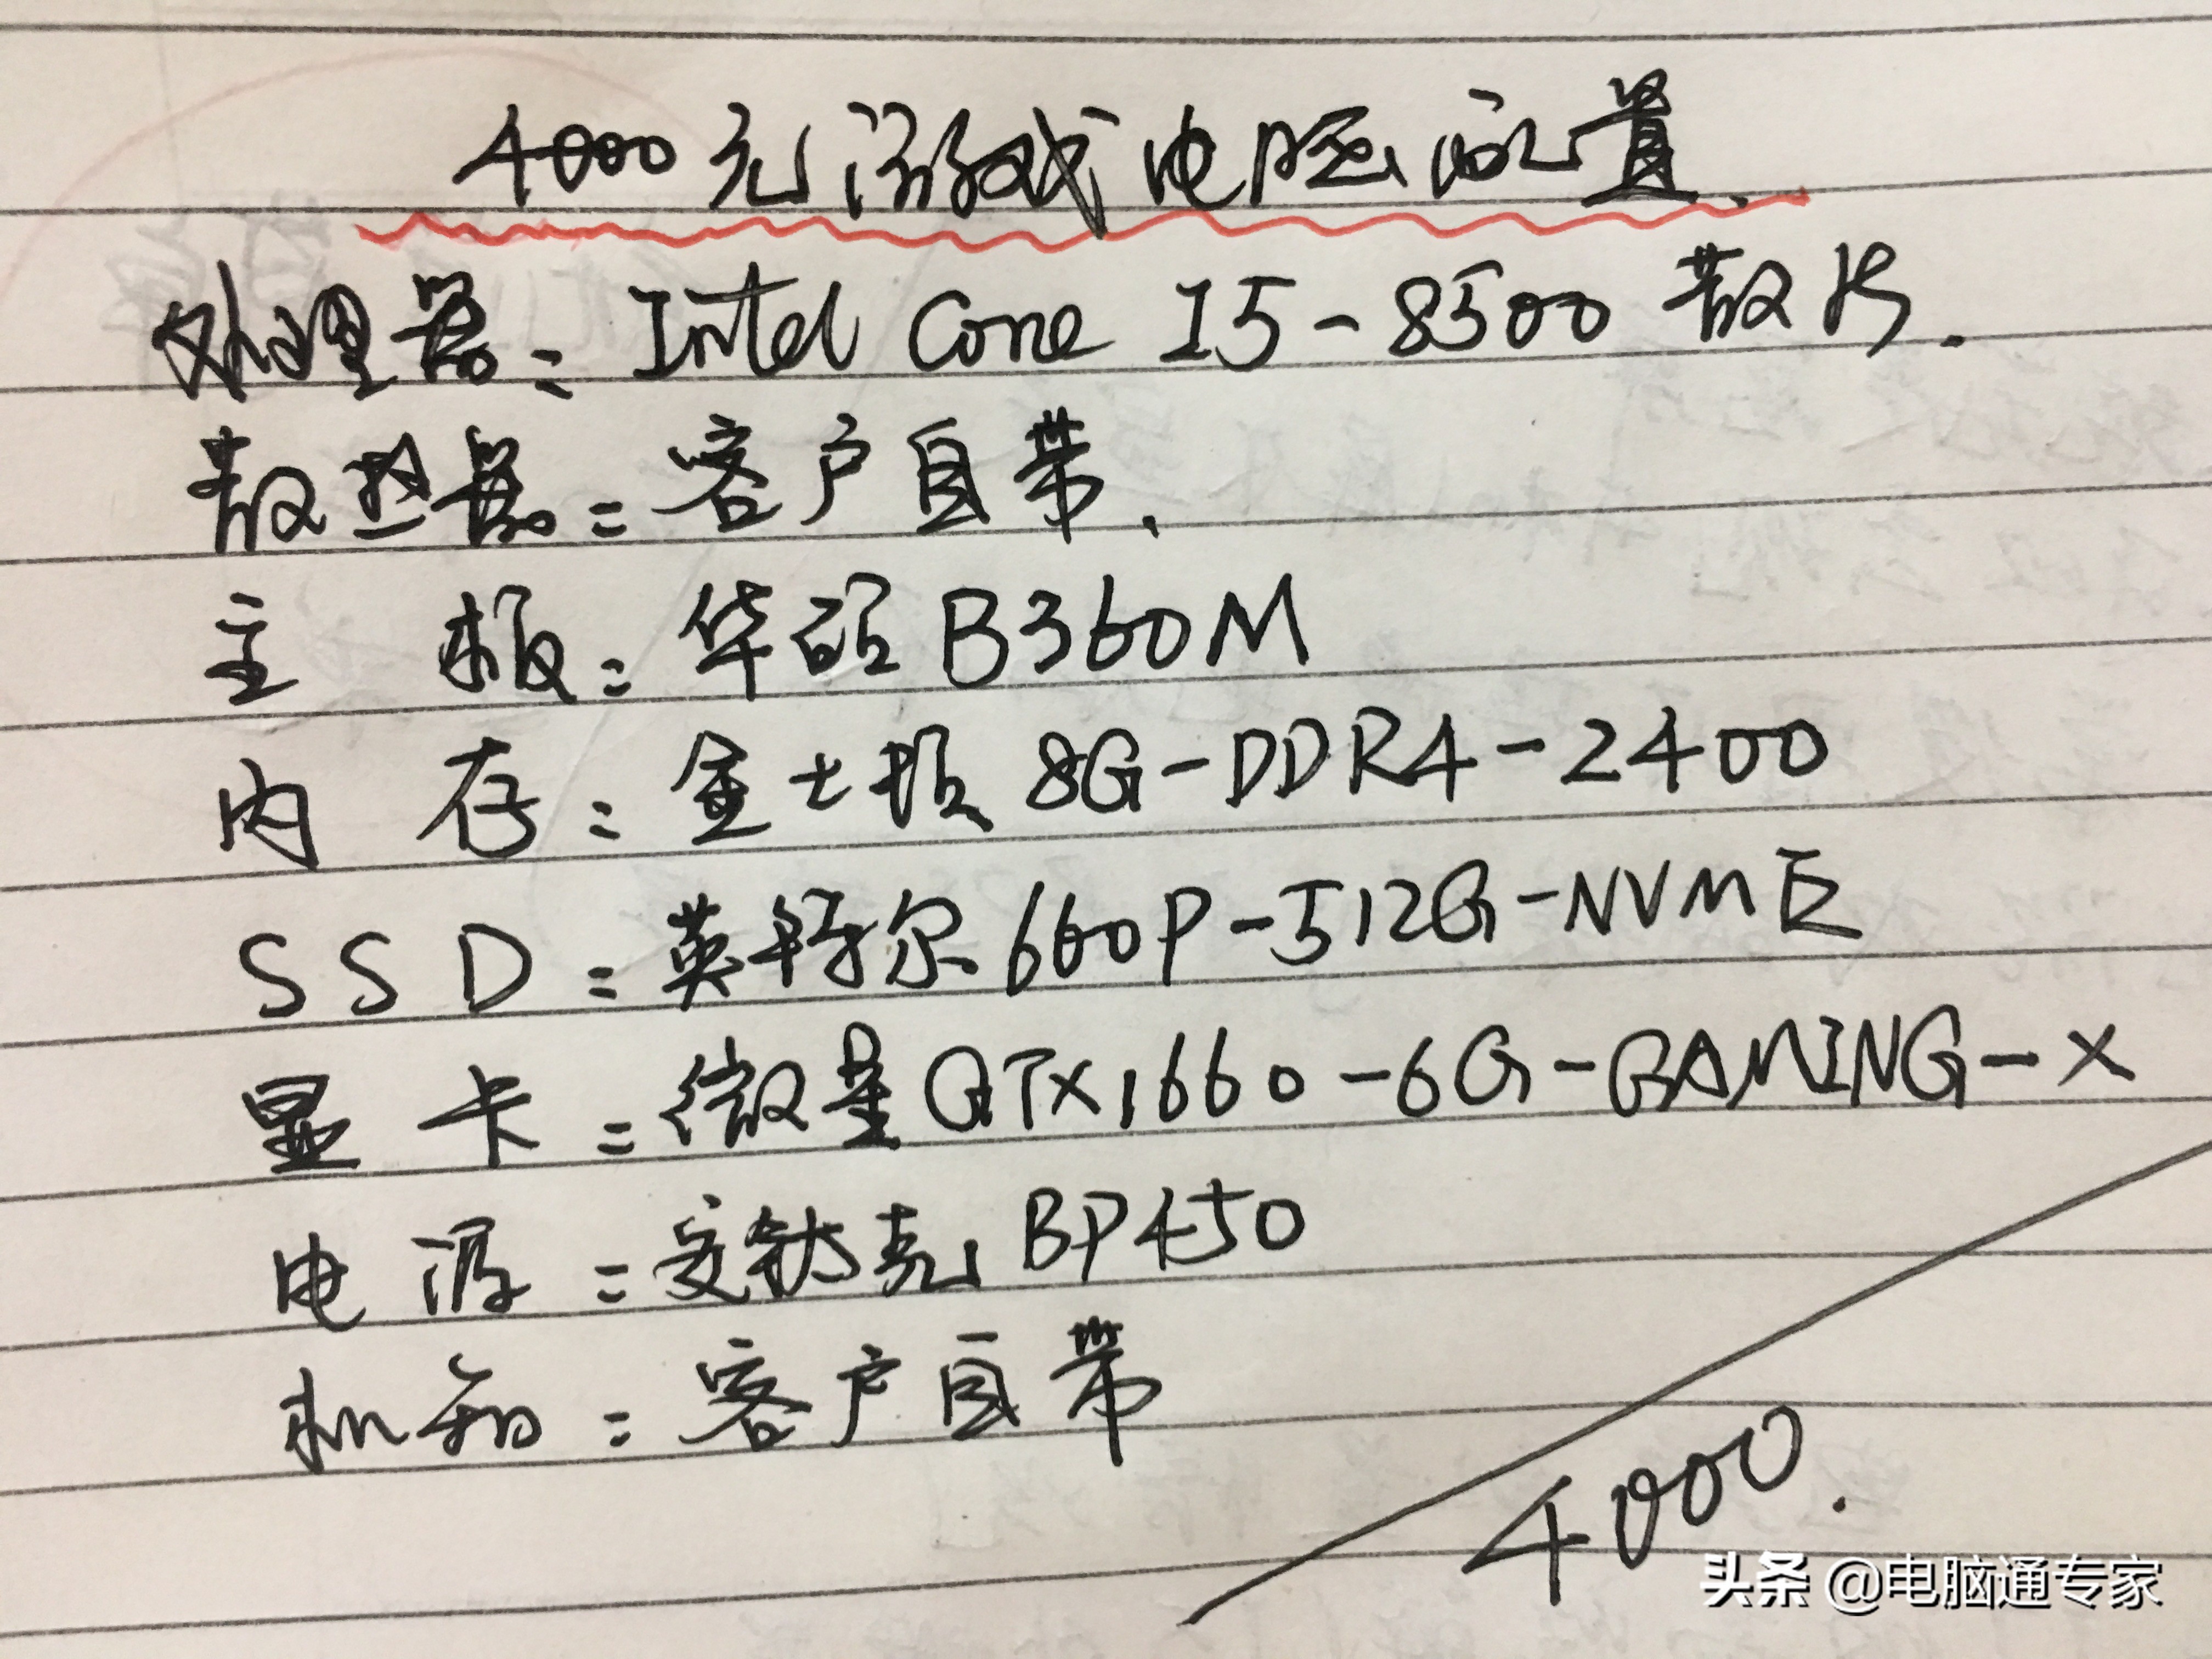 4000元游戏电脑配置.
处理器: Intel Core I5-8500 散片.
散热器: 客户自带.
主 板: 华硕 B360M
内 存: 金士顿 8G-DDR4-2400
SSD: 英特尔 660P-512G-NVME
显 卡: 微星 GTX1660-6G-GAMING-X
电 源: 安钛克 BP450
机箱: 客户自带
4000.
头条 @电脑通专家